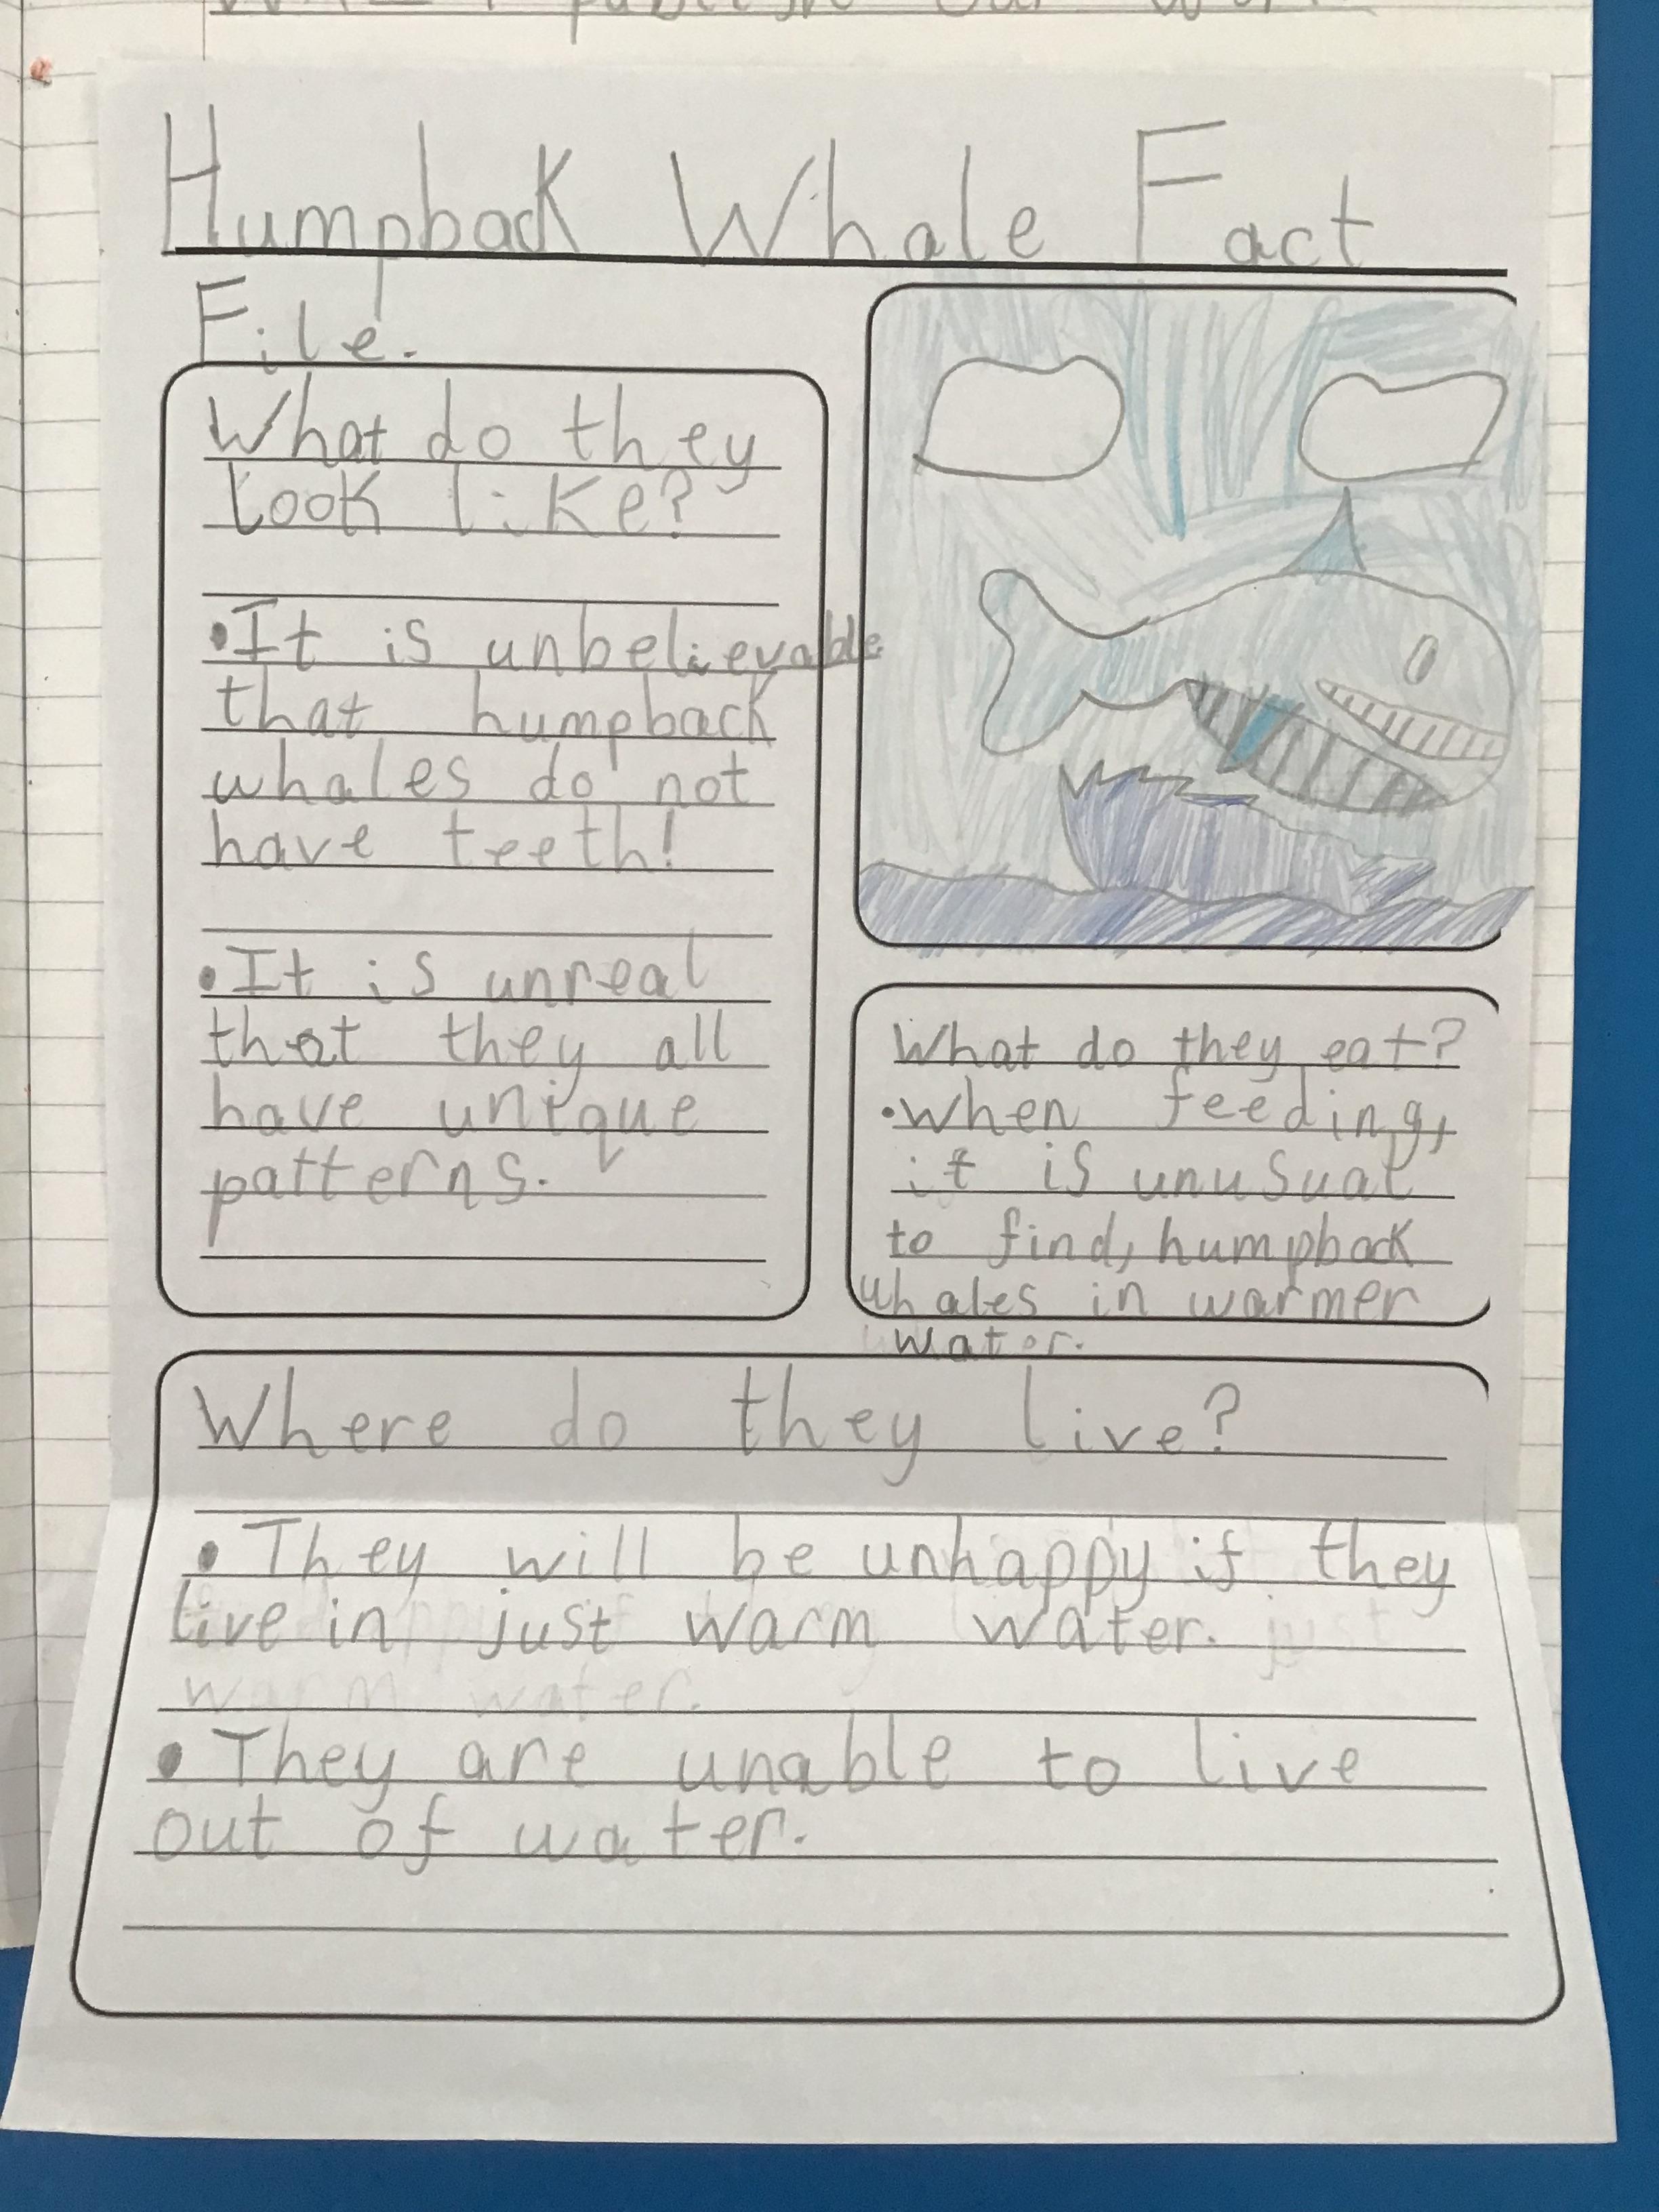 Humpback Whale Fact
File.
What do they
look like?
•It is unbelievable
that humpback
whales do not
have teeth!
•It is unreal
that they all
have unique
patterns.
What do they eat?
•when feeding,
it is unusual
to find, humpback
whales in warmer
water.
Where do they live?
•They will be unhappy if they
live in just warm water.
•They are unable to live
out of water.